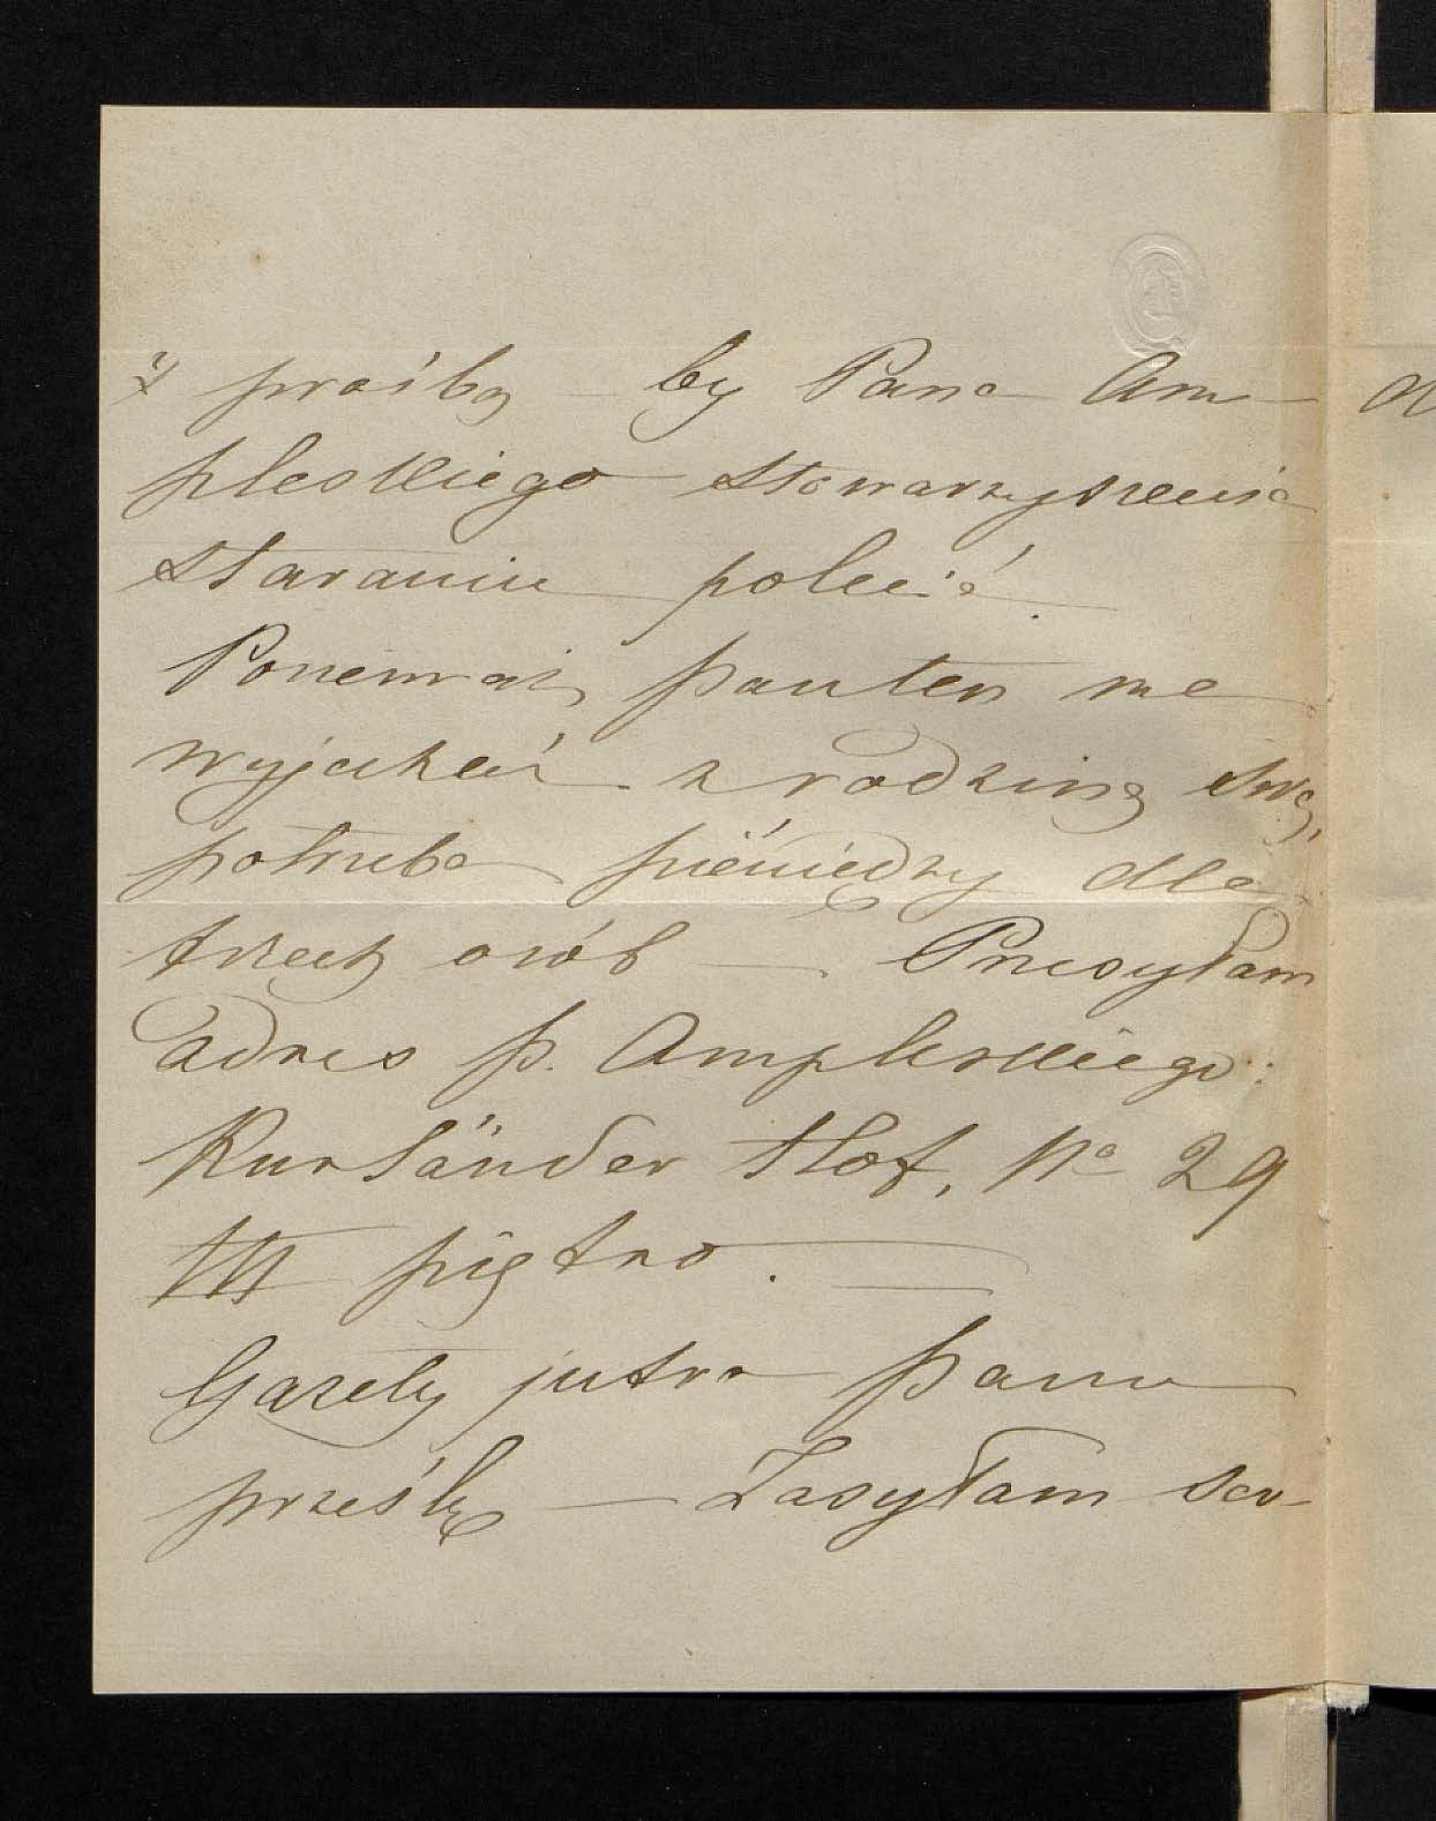 z prośbą – by Pana Am-
pleskiego stowarzyszenia
staraniu polecić.
Ponieważ pan ten ma
wyjechać z rodziną swą,
potrzeba pieniędzy dla
trzech osób —. Przesyłam
adres p. Ampleskiego:
Kurländer Hof, No 29
III piętro.
Gazety jutro panu
prześlę — Zasyłam ser-